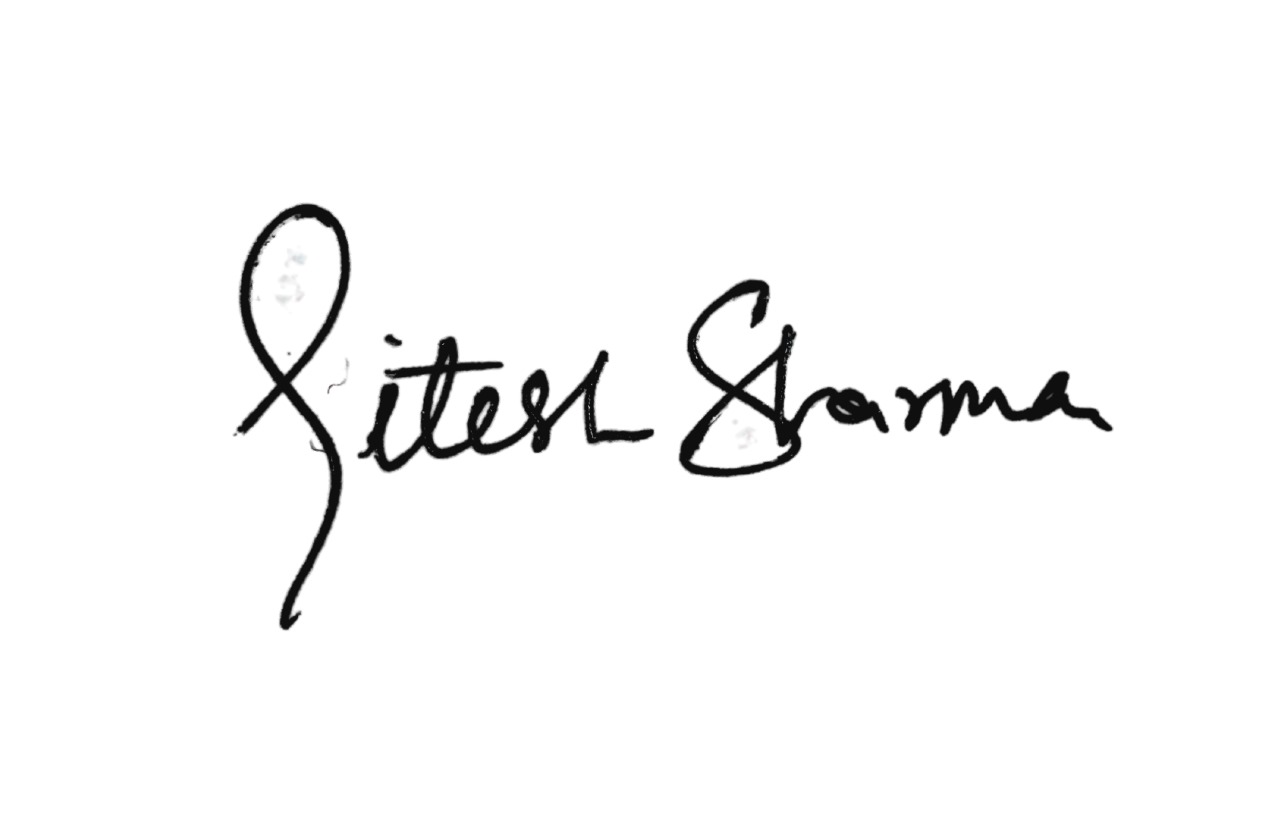 Jitesh Sharma